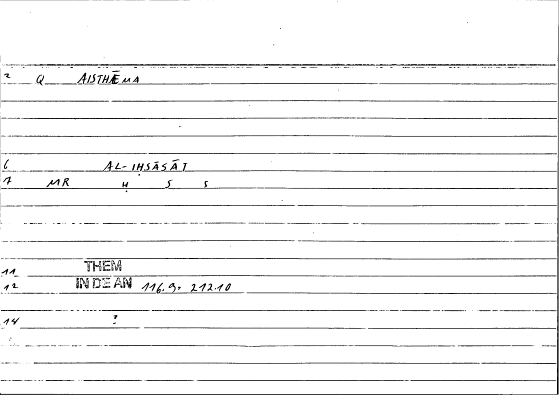 2 Q AISTHĒMA
6 AL-IḤSĀSĀT
7 MR Ḥ S S
11 THEM
12 IN DE AN 116.9, 212.10
14 ?